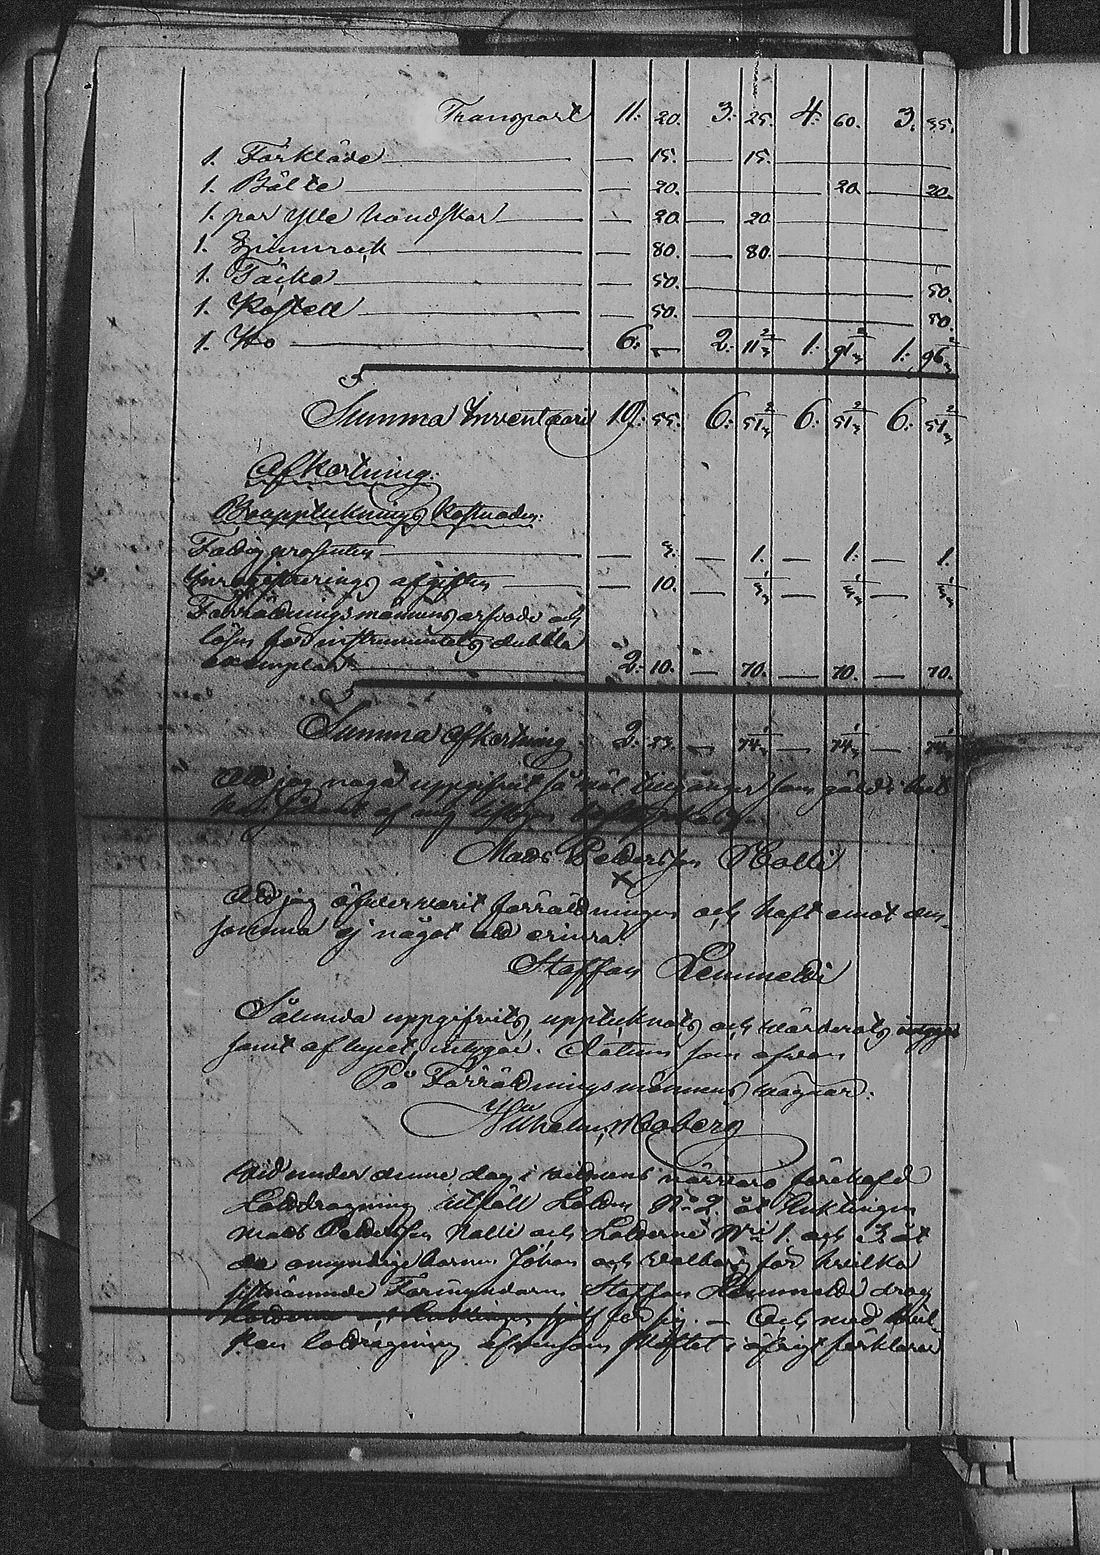 Transport 11. 20. 3. 25. 4. 60. 3. 35.
1. Förkläde — 15. — 15.
1. Bälte — 20. 20. 20.
1. par ylle handskar — 20. — 20.
1. Spinnrock — 80. — 80.
1. Täcke — 50. 50.
1. — 50. 50.
1. Ko 6. — 2. 11 2/3 1. 91 2/3 1. 96 2/3
Summa Inventarii 19. 55. 6. 51 2/3 6. 51 2/3 6. 51 2/3
Afkortning.
Bouppteknings kostnaden.
Fattigprosenten — 3. — 1. — 1. — 1.
Inregistrerings afgiften — 10. — 3 1/3 — 3 1/3 — 3 1/3
Förrättningsmännens arfvode och
lösen för instrumentets dubbla
exemplar 2. 10. — 70. — 70. — 70.
Summa afkortning 2. 23. — 74 1/3 — 74 1/3 — 74 1/3
Att jag noga uppgifvit så väl tillgångar som gäld
af mig
Mads Pedersson Halli
X
Att jag öfvervarit förrättningen och haft emot den-
samma ej något att erinra.
Staffan Lemmeldi
Sålunda uppgifvits, upptecknats och värderats
samt aflyset, intygar. Datum som ofvan
På Förrättningsmännens vägnar:
Wilhelm Moberg
Vid under denne dag i vedmäns närvaro förehafd
Lottdragning tillföll Lotten No 2. åt Enklingen
Mads Pedersson Halli och Lotterne No 1. och 3. åt
de omyndige barnen Johan och Valborg för hvilka
sistnämnde Förmyndaren Staffan Lemmeldi drog
Lotterna och Enklingen sjelf för sig. — Och med hvil-
ken lottdragning äfvensom skiftet i öfrigt förklarar